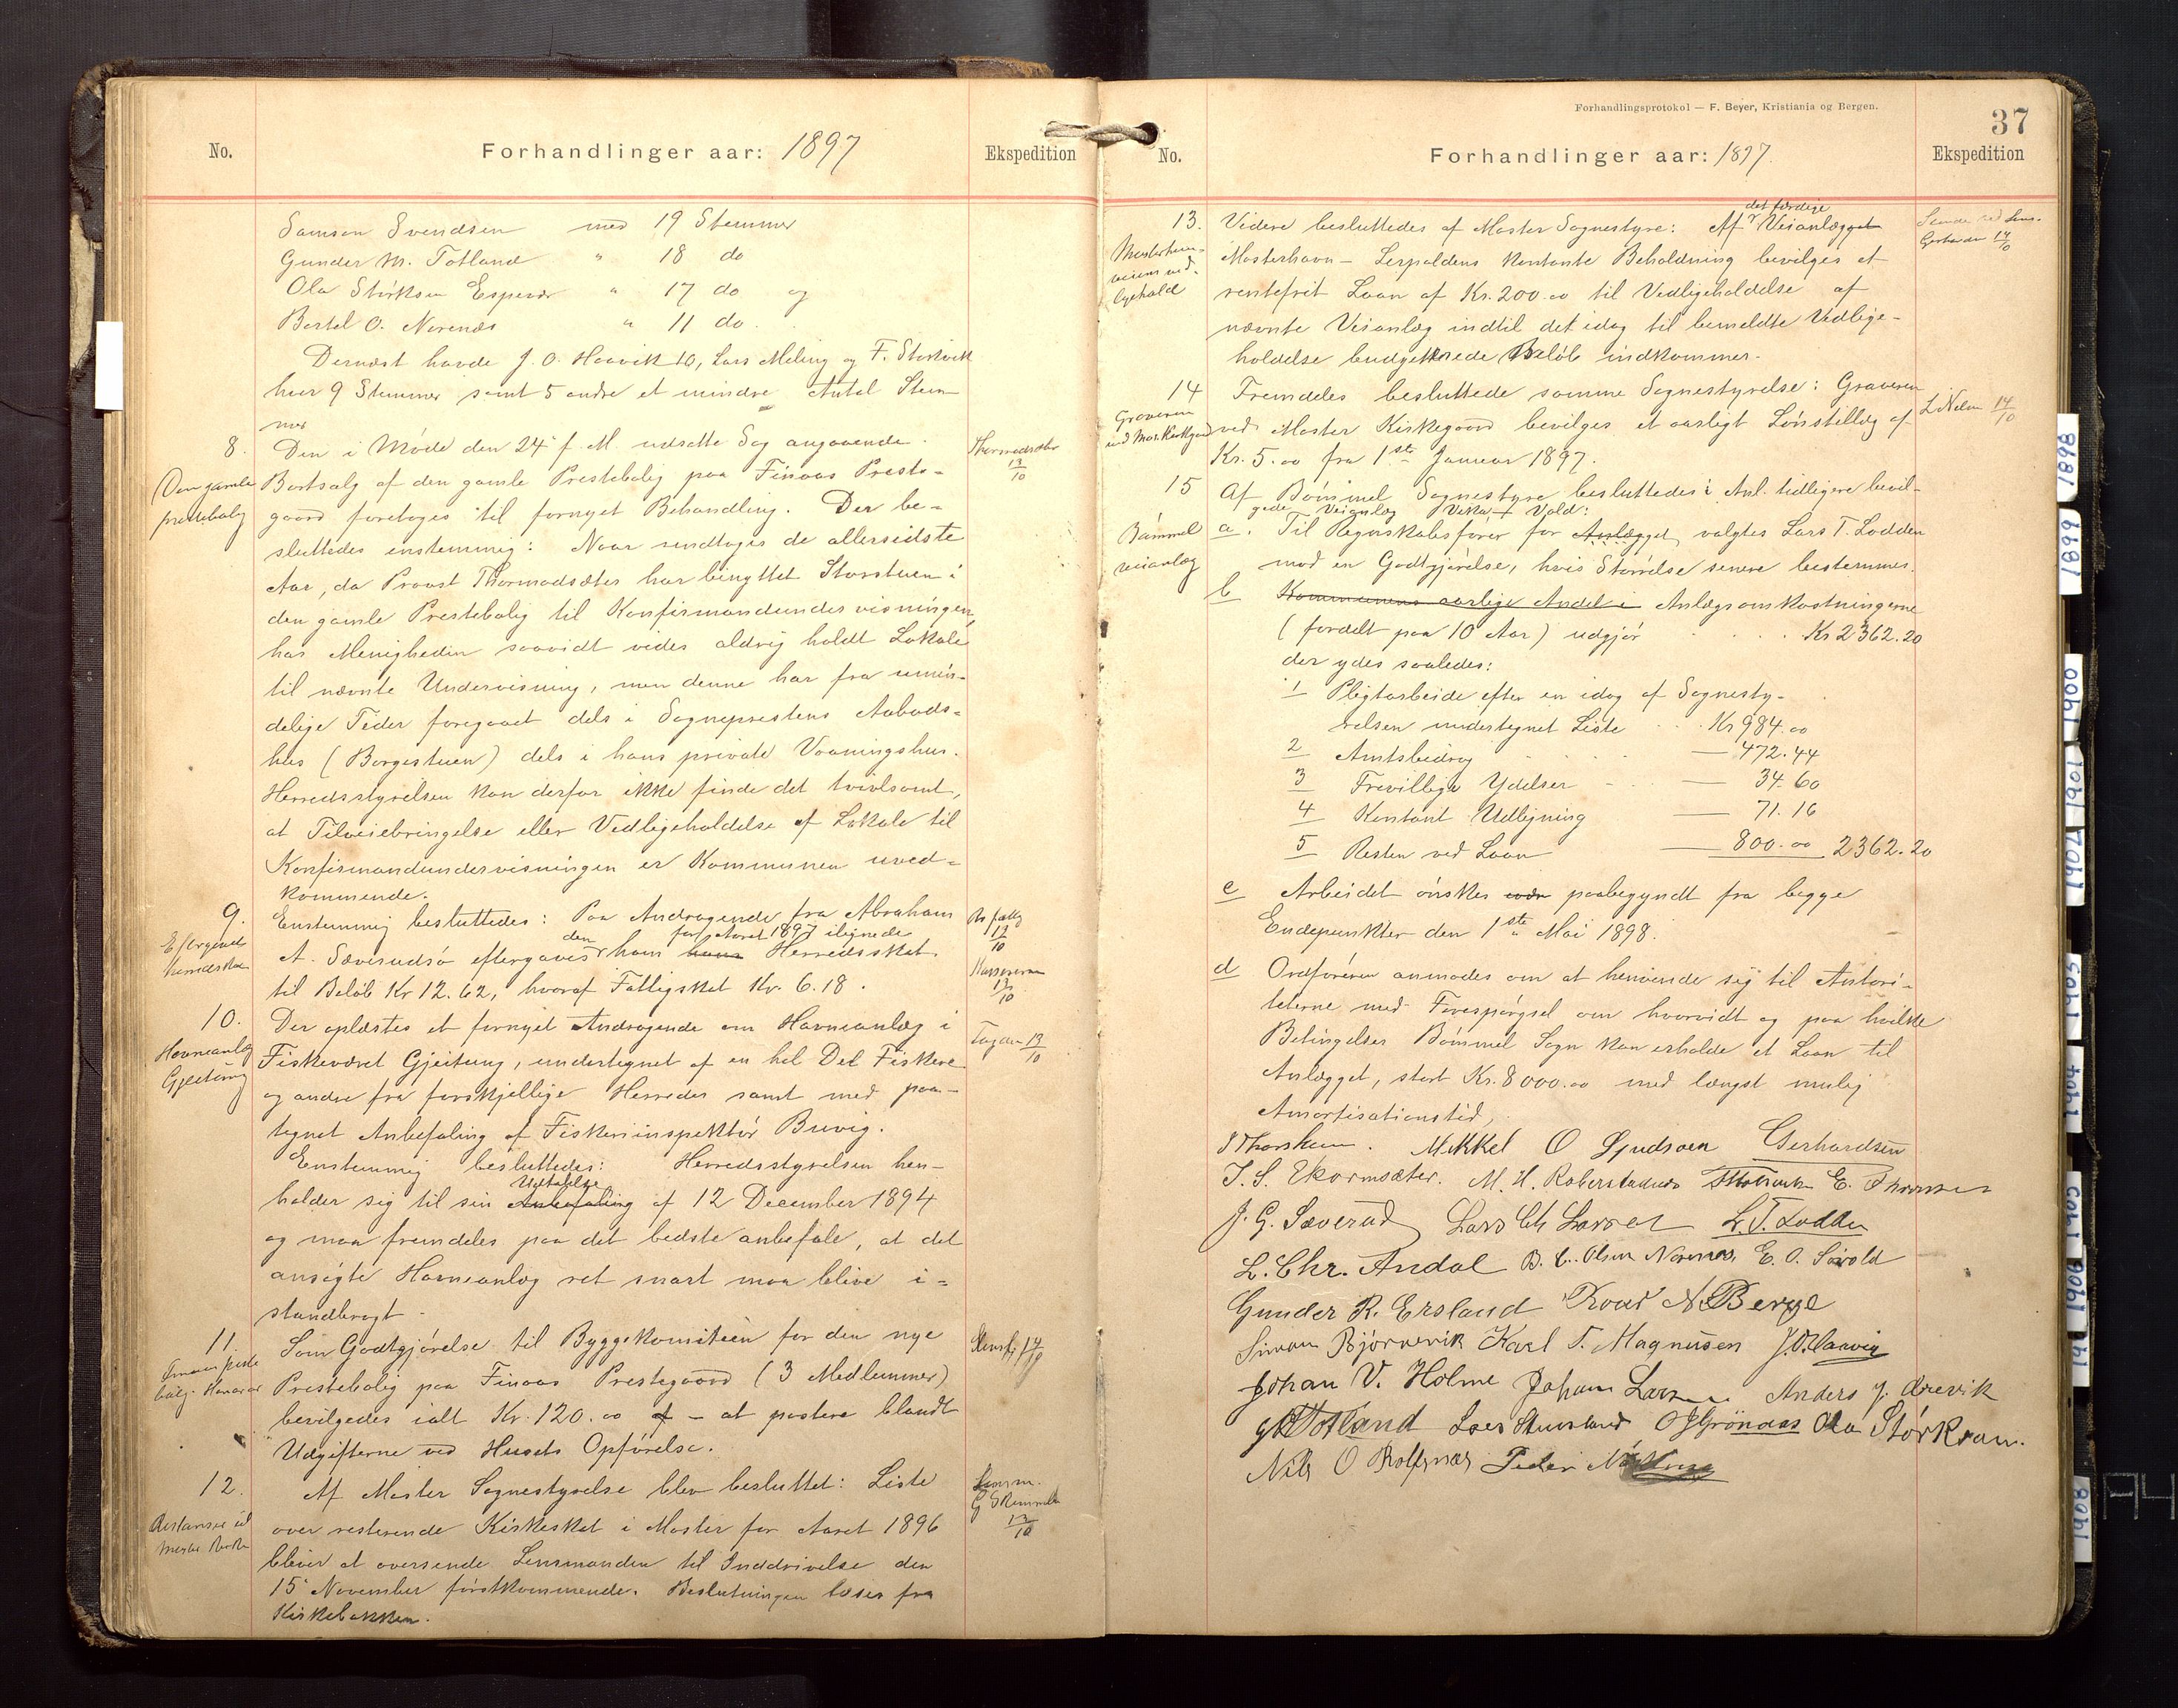 No.
Forhandlinger aar: 1897
Ekspedition
Samson Svendsen med 19 Stemmer
Gunder M. Totland " 18 do
Ola Størksen Espevær " 17 do og
Bertel O. Nærenæs " 11 do.
Dernæst havde J. O. Haavik 10, Lars Meling og F. Storvik
hver 9 Stemmer samt 5 andre et mindre Antal Stem
mer
8.
Den gamle
prestebolig
Den i Møde den 24 f. M. udsatte Sag angaaende
Bortsalg af den gamle Prestebolig paa Finaas Preste-
gaard foretoges til fornyet Behandling. Der be-
sluttedes enstemmig: Naar undtages de allersidste
Aar, da Provst Thormodsæter har benyttet Storstuen i
den gamle Prestebolig til Konfirmandundervisningen,
har Menigheden saavidt vides aldrig holdt Lokale
til nævnte Undervisning, men denne har fra umin-
delige Tider foregaaet dels i Sogneprestens Anbods-
hus (Borgestuen) dels i hans private Vaaningshus.
Herredsstyrelsen kan derfor ikke finde det tvivlsomt,
at Tilveiebringelse eller Vedligeholdelse af Lokale til
Konfirmandundervisningen er Kommunen uved-
kommende.
Thormodsæter
13/10
9.
Eftergivet
herredsskat
Enstemmig besluttedes: Paa Andragende fra Abraham
den for Aaret 1897 ilignede
A. Sæverudsø eftergaves ham hans Herredsskat
til Beløb Kr 12.62, hvoraf Fattigskat Kr. 6.18.
13/10
Kassereren
13/10
10.
Havneanlæg
Gjeitung
Der oplæstes et fornyet Andragende om Havneanlæg i
Fiskeværet Gjeitung, undertegnet af en hel Del Fiskere
og andre fra forskjellige Herreder samt med paa-
tegnet Anbefaling af Fiskeriinspektør Buvig.
Enstemmig besluttedes: Herredsstyrelsen hen-
Udtalelse
holder sig til sin Anbefaling af 12 December 1894
og maa fremdeles paa det bedste anbefale, at det
ansøgte Havneanlæg ret snart maa blive i-
standbragt.
13/10
11.
Som Godtgjørelse til Byggekomiteen for den nye
Prestebolig paa Finaas Prestegaard (3 Medlemmer)
bevilgedes ialt Kr. 120.00 – at postere blandt
Udgifterne ved Husets Opførelse.
14/10
12.
Restanse til
Moster Kirke
Af Moster Sognestyrelse blev besluttet: Liste
over resterende Kirkeskat i Moster for Aaret 1896
bliver at oversende Lensmanden til Inddrivelse den
15 November førstkommende. Beslutningen læses fra
Kirkebakken.
13/10
Forhandlingsprotokol — F. Beyer, Kristiania og Bergen.
37
No.
Forhandlinger aar: 1897.
Ekspedition
13.
Mosterhavn-
veiens ved-
ligehold
det færdige
Videre besluttedes af Moster Sognestyre: Af Veianlægget
Mosterhavn – Lerpoldens kontante Beholdning bevilges et
rentefrit Laan af Kr. 200.00 til Vedligeholdelse af
nævnte Veianlæg indtil det idag til bemeldte Vedlige-
holdelse budgetterede Beløb indkommer.
14/10
14
Graveren
ved Mos. Kirkegaard
Fremdeles besluttede samme Sognestyrelse: Graveren
ved Moster Kirkegaard bevilges et aarligt Lønstillæg af
Kr. 5.00 fra 1ste Januar 1897.
14/10
15
Bømmel
veianlæg
Af Bømmel Sognestyre besluttedes i Anl. tidligere bevil-
gede Veianlæg Vika – Vold:
a. Til Regnskabsfører for Anlægget valgtes Lars T. Lodden
mod en Godtgjørelse, hvis Størrelse senere bestemmes.
b Kommunens aarlige Andel i Anlægsomkostningerne
(fordelt paa 10 Aar) udgjør . . . Kr 2362.20
der ydes saaledes:
1 Pligtarbeide efter en idag af Sognesty-
relsen undertegnet Liste . . . Kr 984.00
2 Amtsbidrag — 472.44
3 Frivillige Ydelser — 34.60
4 Kontant Udligning — 71.16
5 Resten ved Laan — 800.00 2362.20
c Arbeidet ønskes paabegyndt fra begge
Endepunkter den 1ste Mai 1898.
d Ordføreren anmodes om at henvende sig til Autori-
teterne med Forespørgsel om hvorvidt og paa hvilke
Betingelser Bømmel Sogn kan erholde et Laan til
Anlægget, stort Kr. 8000.00 med længst mulig
Amortisationstid.
Mikkel O Gjudsøen Gerhardsen
T. S. Ekornsæter.
J. G. Sæverud Lars Ch Larsen L. T. Lodden
L. Chr. Andal B. C. Olsen Nærenæs. E. O. Sørvold
Gunder R. Ersland Roar N. Berge
Simon Bjørnevik Karl T. Magnusen J. O. Haavig
Johan V. Holme Johan Larsen Anders J. Drevik
G M Totland Lars Stensland O J Grønaas Ola Størksen.
Nils O Rolfsnæs Peder
1898
1899
1900
1901
1902
1903
1904
1905
1906
1907
1908